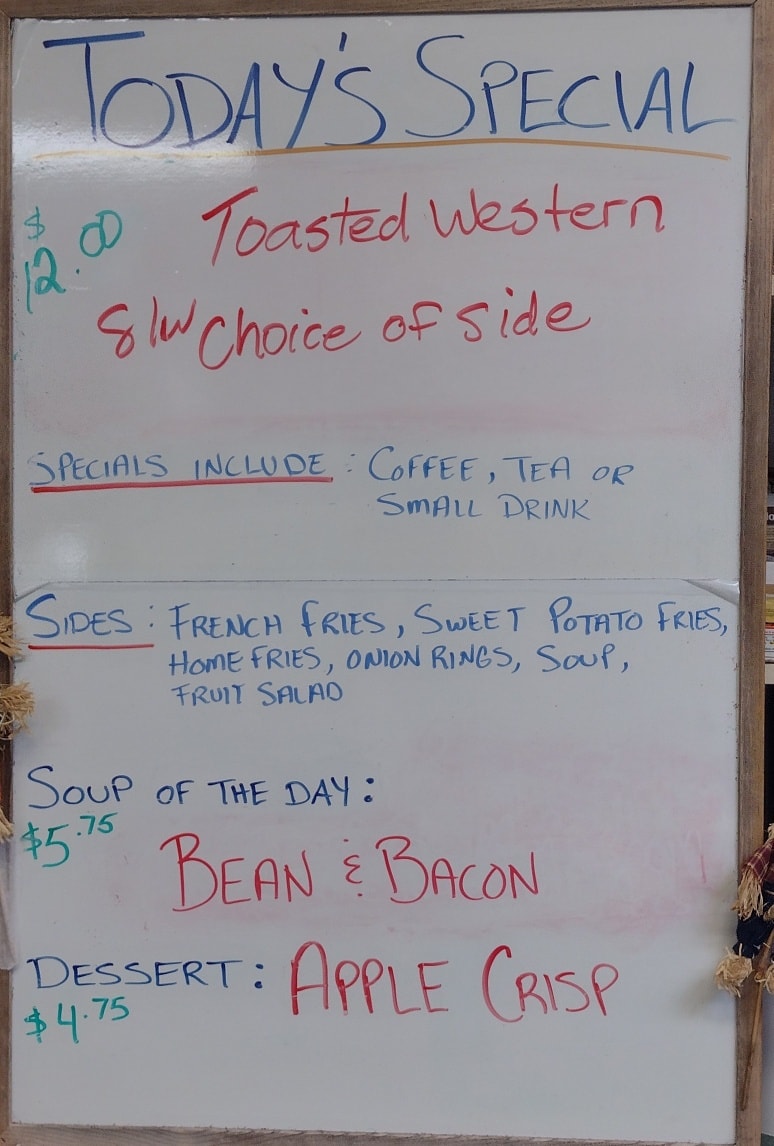 TODAY'S SPECIAL
$12.00 Toasted Western
S/W Choice of side
SPECIALS INCLUDE : COFFEE, TEA OR
SMALL DRINK
SIDES : FRENCH FRIES, SWEET POTATO FRIES,
HOME FRIES, ONION RINGS, SOUP,
FRUIT SALAD
SOUP OF THE DAY:
$5.75
BEAN & BACON
DESSERT: APPLE CRISP
$4.75